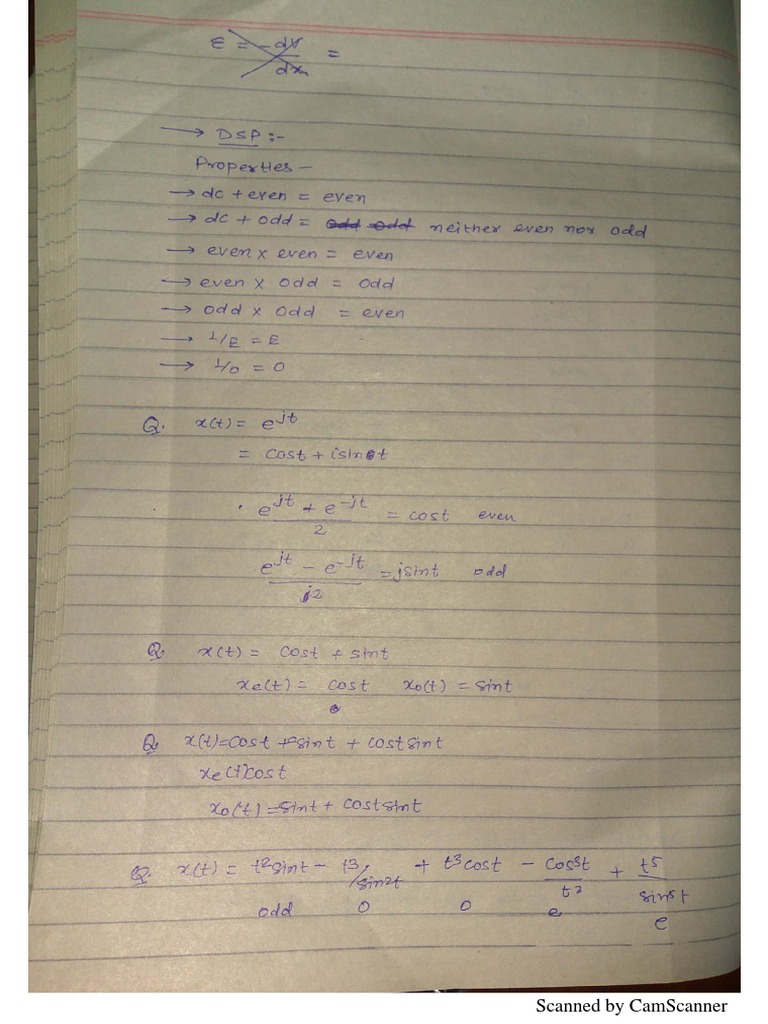 ε = -dV/dx =
→ DSP :-
Properties -
→ dc + even = even
→ dc + odd = odd odd neither even nor odd
→ even x even = even
→ even x odd = odd
→ odd x odd = even
→ 1/E = E
→ 1/O = O
Q. x(t) = e^jt
= cost + isint
e^jt + e^-jt / 2 = cost even
e^jt - e^-jt / j2 = jsint odd
Q. x(t) = cost + sint
xe(t) = cost xo(t) = sint
Q. x(t)=cost + sint + costsint
xe(t)cost
xo(t) = sint + costsint
Q. x(t) = t2sint - t3/sin2t + t3cost - cos3t/t2 + t5/sin5t
odd O O e e
Scanned by CamScanner